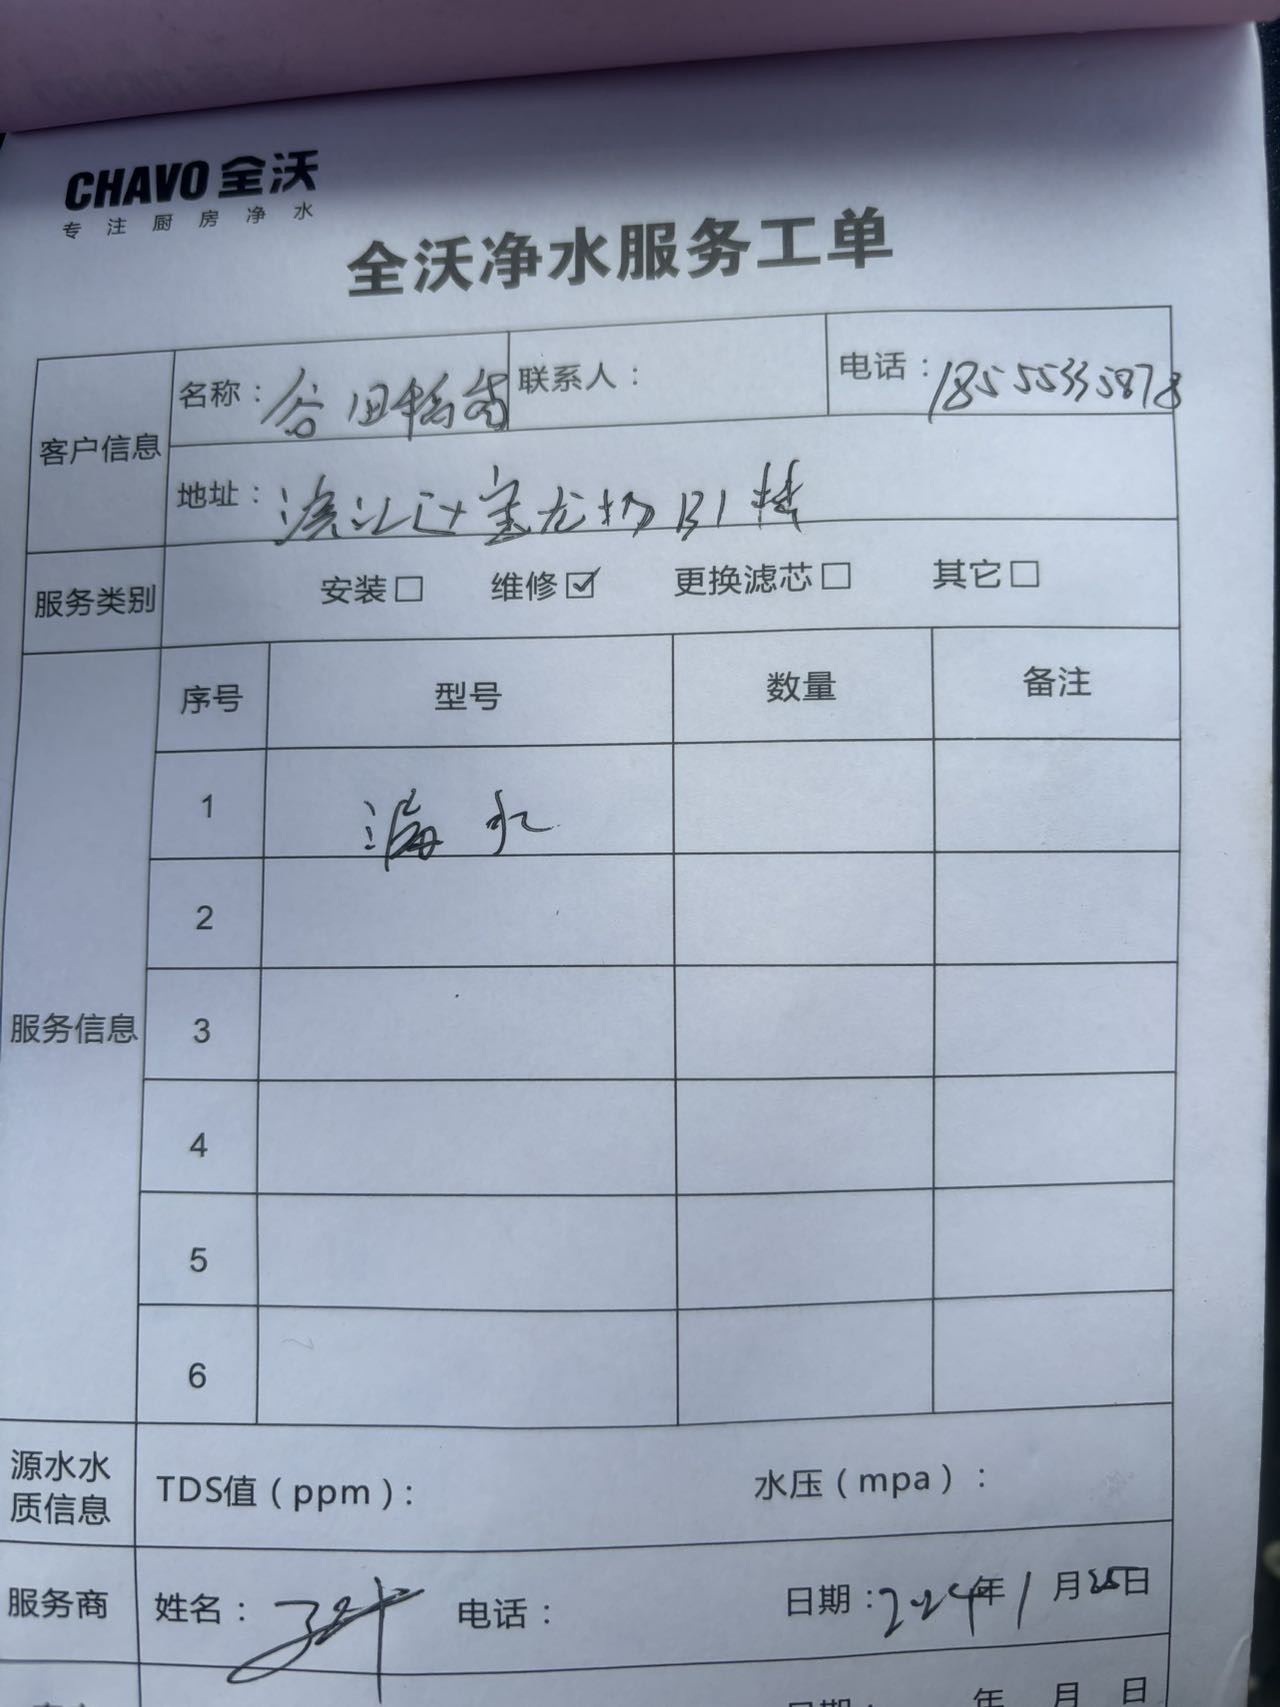 CHAVO 全沃
专注厨房净水
全沃净水服务工单
客户信息 名称：谷田稻香 联系人： 电话：18555335878
地址：滨江 宝龙 B1楼
服务类别 安装☐ 维修☑ 更换滤芯☐ 其它☐
服务信息 序号 型号 数量 备注
1 漏水
2
3
4
5
6
源水水质信息 TDS值（ppm）： 水压（mpa）：
服务商 姓名： 电话： 日期：2024年1月25日
年 月 日